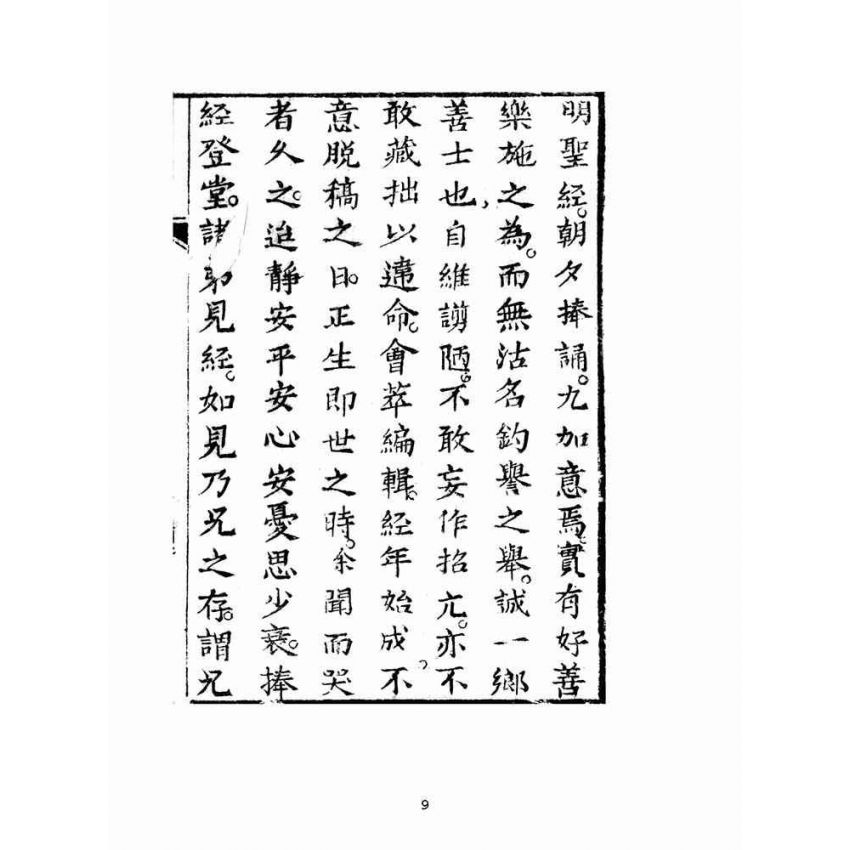 明聖經。朝夕捧誦。尤加意焉。實有好善
樂施之為。而無沽名釣譽之舉。誠一鄉
善士也，自維謭陋。不敢妄作招尤。亦不
敢藏拙以違命。會萃編輯。經年始成。不
意脱稿之日。正生即世之時。余聞而哭
者久之。迨靜安平安心安憂思少衰。捧
經登堂。諸弟見經。如見乃兄之存。謂兄
9